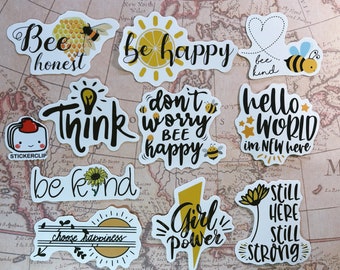 Bee
honest
be happy
bee
kind
Think
don't
worry BEE
happy
hello
WORLD
im NEW here
STICKERCLIP
be kind
choose happiness
Girl
Power
STILL
HERE
STILL
STRONG